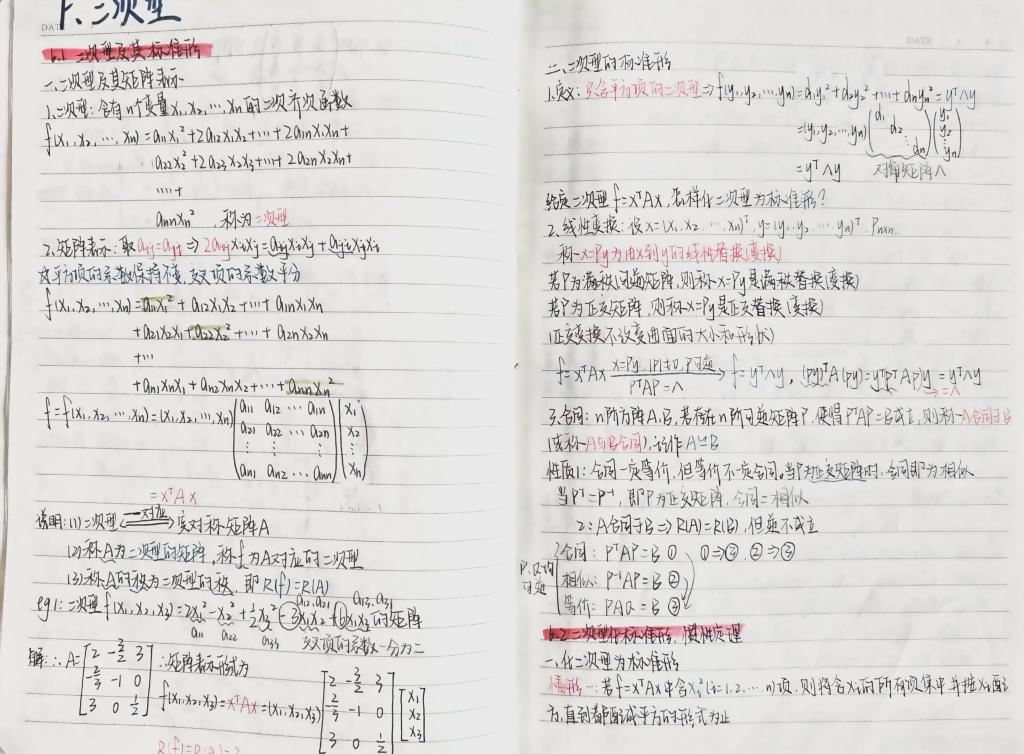 二次型
DATE
6.1 二次型及其标准形
一、二次型及其矩阵表示
1.二次型:含有n个变量x₁,x₂,…,xn的二次齐次函数
f(x₁,x₂,…,xn)=a₁₁x₁²+2a₁₂x₁x₂+…+2a₁nx₁xn+
a₂₂x₂²+2a₂₃x₂x₃+…+2a₂nx₂xn+
…+
annxn² 称为二次型
2.矩阵表示:取aij=aji⇒2aijxixj=aijxixj+ajixjxi
平方项的系数保持不变,交叉项的系数平分
f(x₁,x₂,…,xn)=a₁₁x₁²+a₁₂x₁x₂+…+a₁nx₁xn
+a₂₁x₂x₁+a₂₂x₂²+…+a₂nx₂xn
+…
+an₁xnx₁+an₂xnx₂+…+annxn²
f=f(x₁,x₂,…,xn)=(x₁,x₂,…,xn)
a₁₁ a₁₂ … a₁n x₁
a₂₁ a₂₂ … a₂n x₂
⋮ ⋮ ⋮ ⋮
an₁ an₂ … ann xn
=xᵀAx
说明:(1)二次型 一一对应 实对称矩阵A
(2)称A为二次型的矩阵,称f为A对应的二次型
(3)称A的秩为二次型的秩,即R(f)=R(A)
a₁₂,a₂₁ a₁₃,a₃₁
eg1:二次型f(x₁,x₂,x₃)=2x₁²-x₂²+½x₃²-3x₁x₂+6x₁x₃的矩阵
a₁₁ a₂₂ a₃₃ 交叉项的系数一分为二
解:∴A=
2 -3/2 3
-2/3 -1 0
3 0 1/2
∴矩阵表示形式为
f(x₁,x₂,x₃)=xᵀAx=(x₁,x₂,x₃)
2 -3/2 3 x₁
2/3 -1 0 x₂
3 0 1/2 x₃
R(f)=R(A)=3
DATE
二、二次型的标准形
1.定义:只含平方项的二次型⇒f(y₁,y₂,…,yn)=d₁y₁²+d₂y₂²+…+dnyn²=yᵀ∧y
=(y₁,y₂,…,yn)
d₁ y₁
d₂ y₂
⋱ ⋮
dn yn
=yᵀ∧y 对角矩阵∧
给定二次型f=xᵀAx,怎样化二次型为标准形?
2.线性变换:设x=(x₁,x₂,…,xn)ᵀ,y=(y₁,y₂,…,yn)ᵀ,Pn×n
称x=Py为由x到y的线性替换(变换)
若P为满秩(可逆)矩阵,则称x=Py是满秩替换(变换)
若P为正交矩阵,则称x=Py是正交替换(变换)
(正交变换不改变曲面的大小和形状)
f=xᵀAx x=Py,|P|≠0,P可逆 PᵀAP=∧ f=yᵀ∧y,(Py)ᵀA(Py)=yᵀ(PᵀAP)y=yᵀ∧y
=∧
3.合同:n阶方阵A,B,若存在n阶可逆矩阵P,使得PᵀAP=B成立,则称A合同于B
(或称A与B合同),记作A≃B
性质1:合同一定等价,但等价不一定合同。当P为正交矩阵时,合同即为相似
当Pᵀ=P⁻¹,即P为正交矩阵,合同=相似
2:A合同于B⇒R(A)=R(B),但逆不成立
合同:PᵀAP=B ① ①⇒③,②⇒③
P,Q均可逆
相似:P⁻¹AP=B ②
等价:PAQ=B ③
6.2 二次型化标准形,惯性定理
一、化二次型为标准形
情形一:若f=xᵀAx中含xi²(i=1,2,…,n)项,则将含xi的所有项集中并按xi配
方,直到都配成平方的形式为止